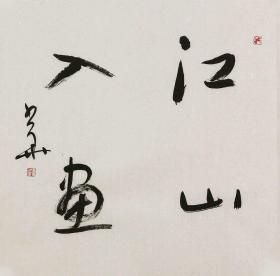 江山
入画